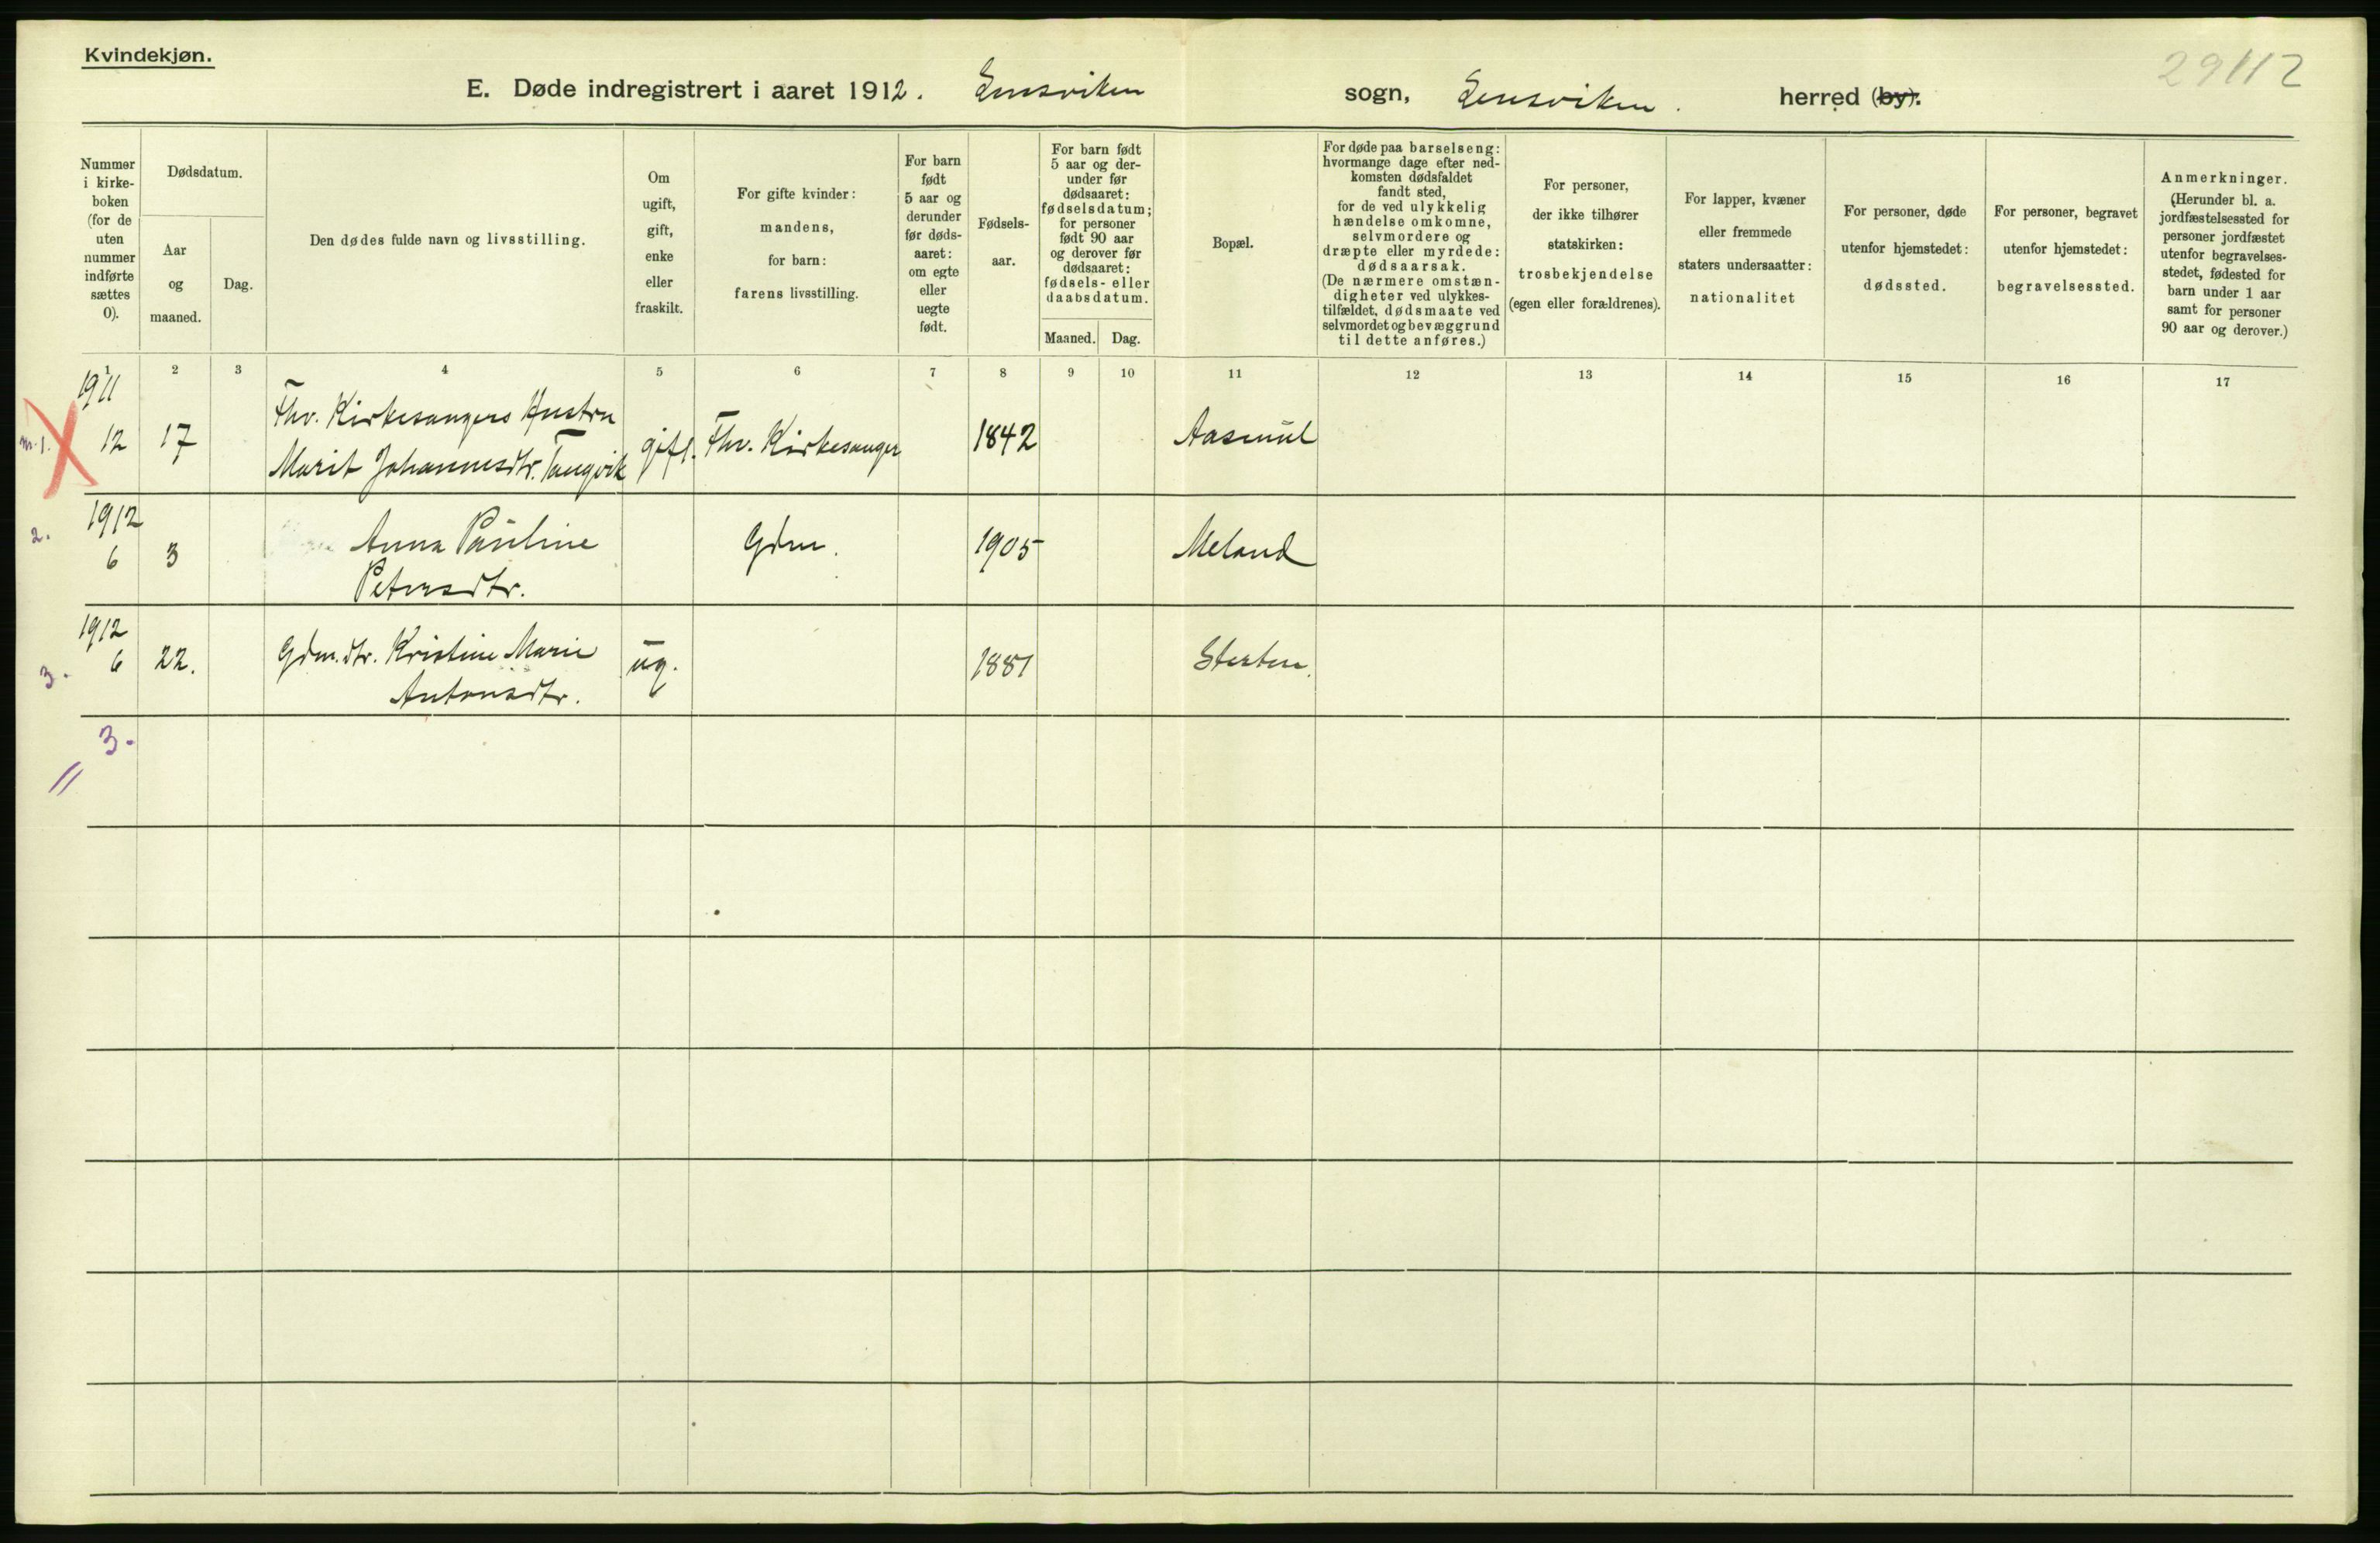 Kvindekjøn.
29112
E. Døde indregistrert i aaret 1912. Lensviken sogn, Lensviken. herred (by).
Nummer i kirke-boken (for de uten nummer indførte sættes 0).
Dødsdatum.
Aar og maaned.
Dag.
Den dødes fulde navn og livsstilling.
Om ugift, gift, enke eller fraskilt.
For gifte kvinder: mandens, for barn: farens livsstilling.
For barn født 5 aar og derunder før døds-aaret: om egte eller uegte født.
Fødsels-aar.
For barn født 5 aar og der-under før dødsaaret: fødselsdatum; for personer født 90 aar og derover før dødsaaret: fødsels- eller daabsdatum.
Maaned.
Dag.
Bopæl.
For døde paa barselseng: hvormange dage efter ned-komsten dødsfaldet fandt sted, for de ved ulykkelig hændelse omkomne, selvmordere og dræpte eller myrdede: dødsaarsak. (De nærmere omstæn-digheter ved ulykkes-tilfældet, dødsmaate ved selvmordet og bevæggrund til dette anføres.)
For personer, der ikke tilhører statskirken: trosbekjendelse (egen eller forældrenes).
For lapper, kvæner eller fremmede staters undersaatter: nationalitet
For personer, døde utenfor hjemstedet: dødssted.
For personer, begravet utenfor hjemstedet: begravelsessted.
Anmerkninger. (Herunder bl. a. jordfæstelsessted for personer jordfæstet utenfor begravelses-stedet, fødested for barn under 1 aar samt for personer 90 aar og derover.)
1 2 3 4 5 6 7 8 9 10 11 12 13 14 15 16 17
1911
Fhv. Kirkesangers Hustru
m. 1. 12 17 Marit Johannesdtr. Tangvik gift. Fhv. Kirkesanger 1842 Aasmul
1912
2. 6 3 Anna Pauline Gdm. 1905 Meland
Petersdtr.
1912
3. 6 22. Gdm.dtr. Kristine Marie ug. 1881 Sterten.
Antonsdtr.
3.